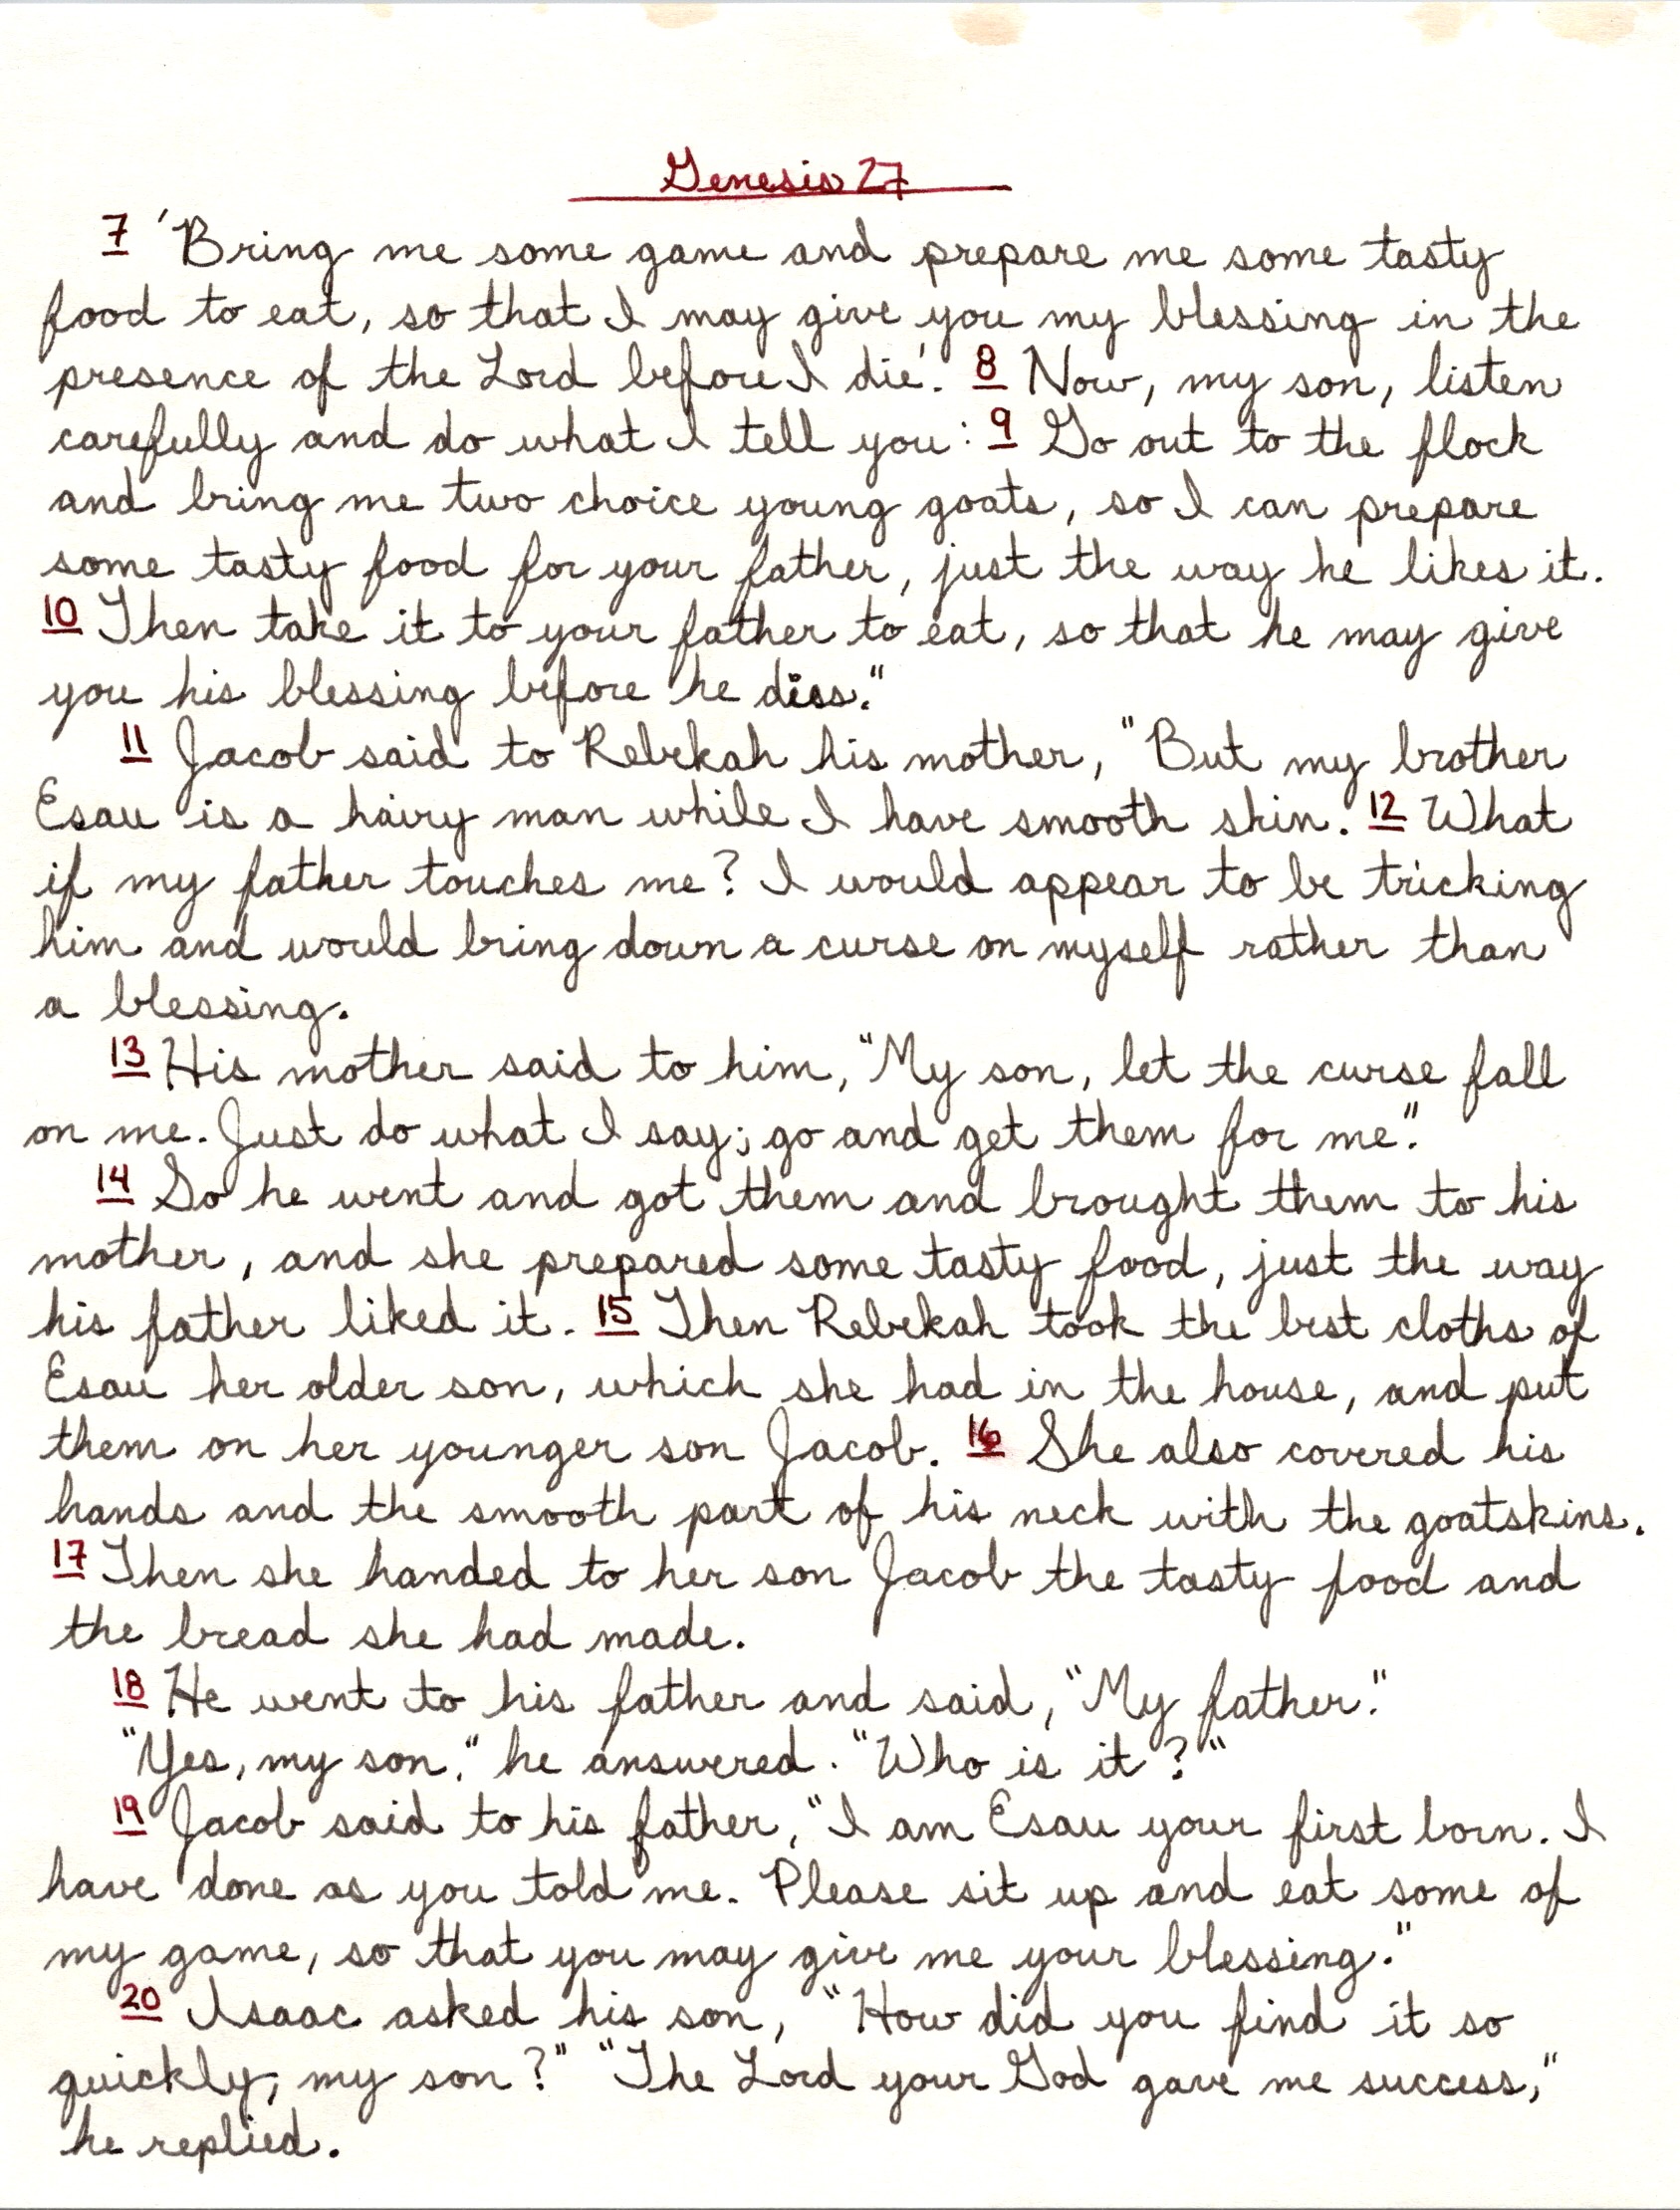 Genesis 27
7 'Bring me some game and prepare me some tasty
food to eat, so that I may give you my blessing in the
presence of the Lord before I die.' 8 Now, my son, listen
carefully and do what I tell you: 9 Go out to the flock
and bring me two choice young goats, so I can prepare
some tasty food for your father, just the way he likes it.
10 Then take it to your father to eat, so that he may give
you his blessing before he dies."
11 Jacob said to Rebekah his mother, "But my brother
Esau is a hairy man while I have smooth skin. 12 What
if my father touches me? I would appear to be tricking
him and would bring down a curse on myself rather than
a blessing.
13 His mother said to him, "My son, let the curse fall
on me. Just do what I say; go and get them for me."
14 So he went and got them and brought them to his
mother, and she prepared some tasty food, just the way
his father liked it. 15 Then Rebekah took the best cloths of
Esau her older son, which she had in the house, and put
them on her younger son Jacob. 16 She also covered his
hands and the smooth part of his neck with the goatskins.
17 Then she handed to her son Jacob the tasty food and
the bread she had made.
18 He went to his father and said, "My father."
"Yes, my son," he answered. "Who is it?"
19 Jacob said to his father, "I am Esau your first born. I
have done as you told me. Please sit up and eat some of
my game, so that you may give me your blessing."
20 Isaac asked his son, "How did you find it so
quickly, my son?" "The Lord your God gave me success,"
he replied.